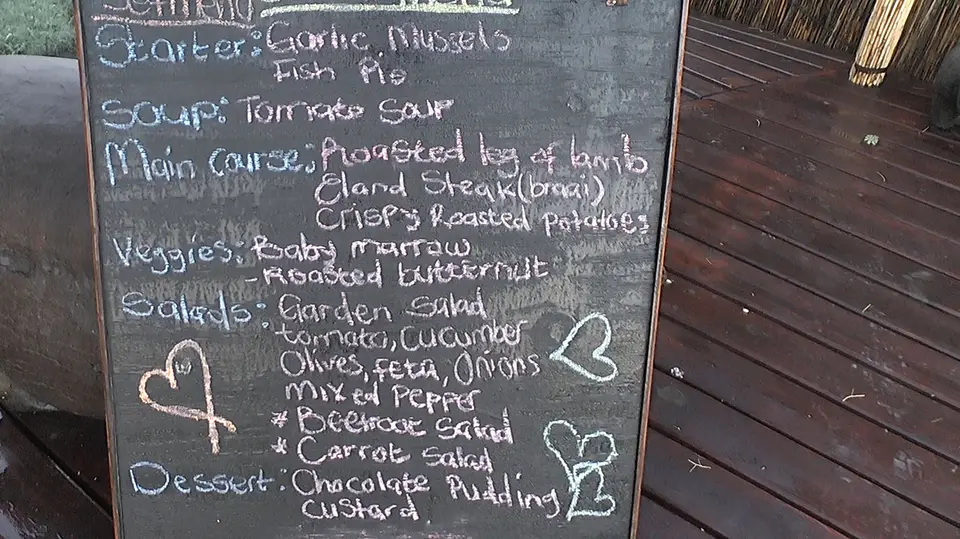 Starter: Garlic Mussels
Fish Pie
Soup: Tomato Soup
Main Course: Roasted leg of lamb
Eland Steak (braai)
Crispy Roasted potatoes
Veggies: Baby marrow
- Roasted butternut
Salads: Garden Salad
tomato, cucumber
Olives, feta, Onions
Mixed Pepper
* Beetroot Salad
* Carrot Salad
Dessert: Chocolate Pudding
Custard